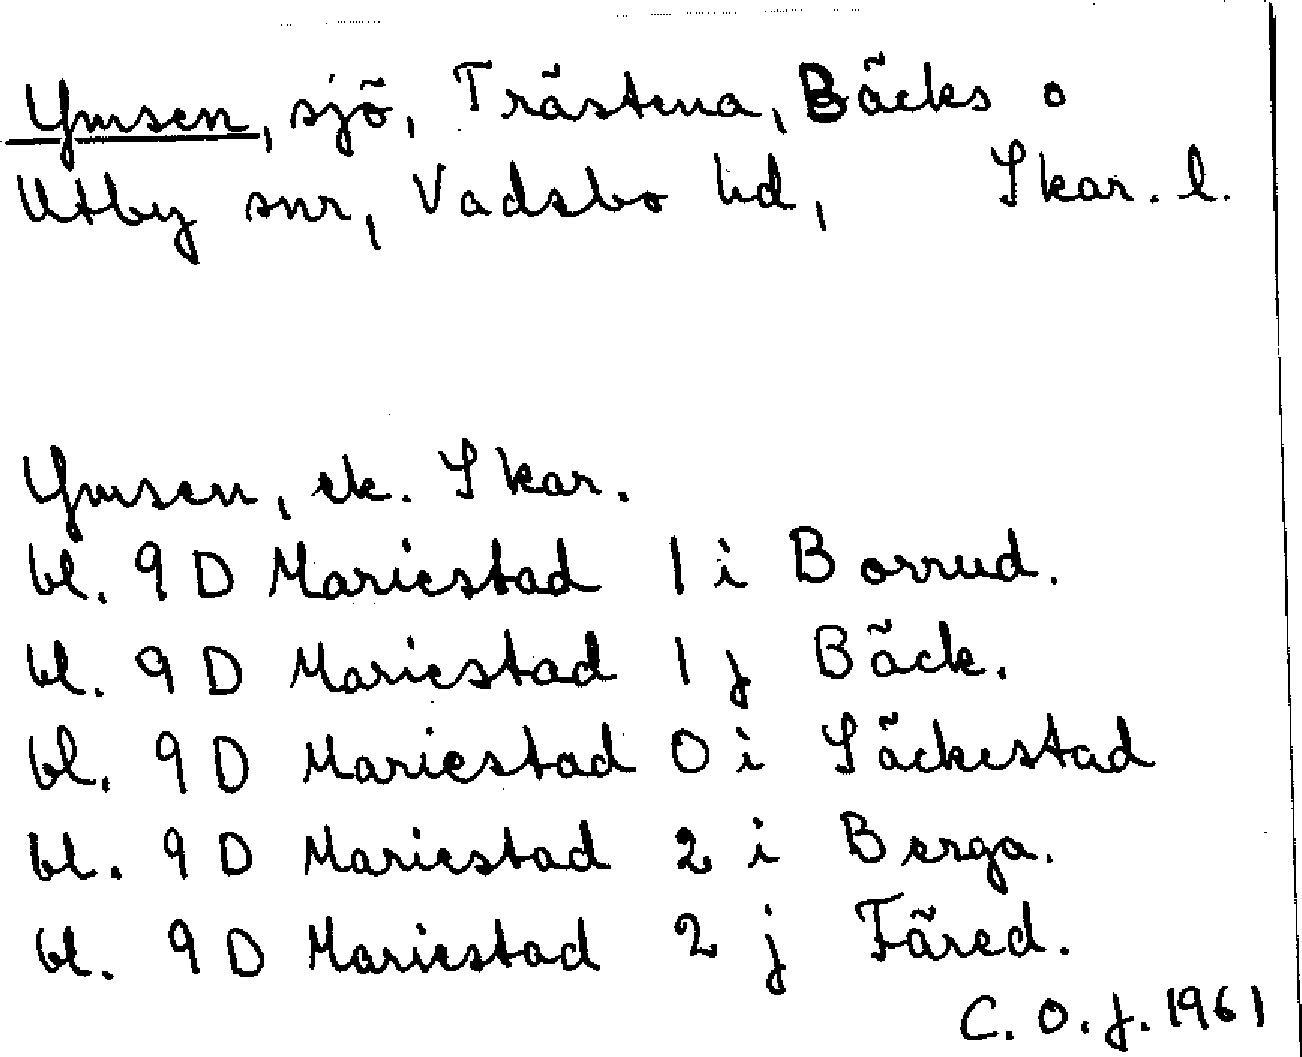 Ymsen, sjö, Trästena, Bäcks o
Utby snr, Vadsbo hd, Skar. l.
Ymsen, ek. Skar.
bl. 9 D Mariestad 1 i Borrud.
bl. 9 D Mariestad 1 j Bäck.
bl. 9 D Mariestad 0 i Säckestad
bl. 9 D Mariestad 2 i Berga.
bl. 9 D Mariestad 2 j Färed.
C. O. J. 1961